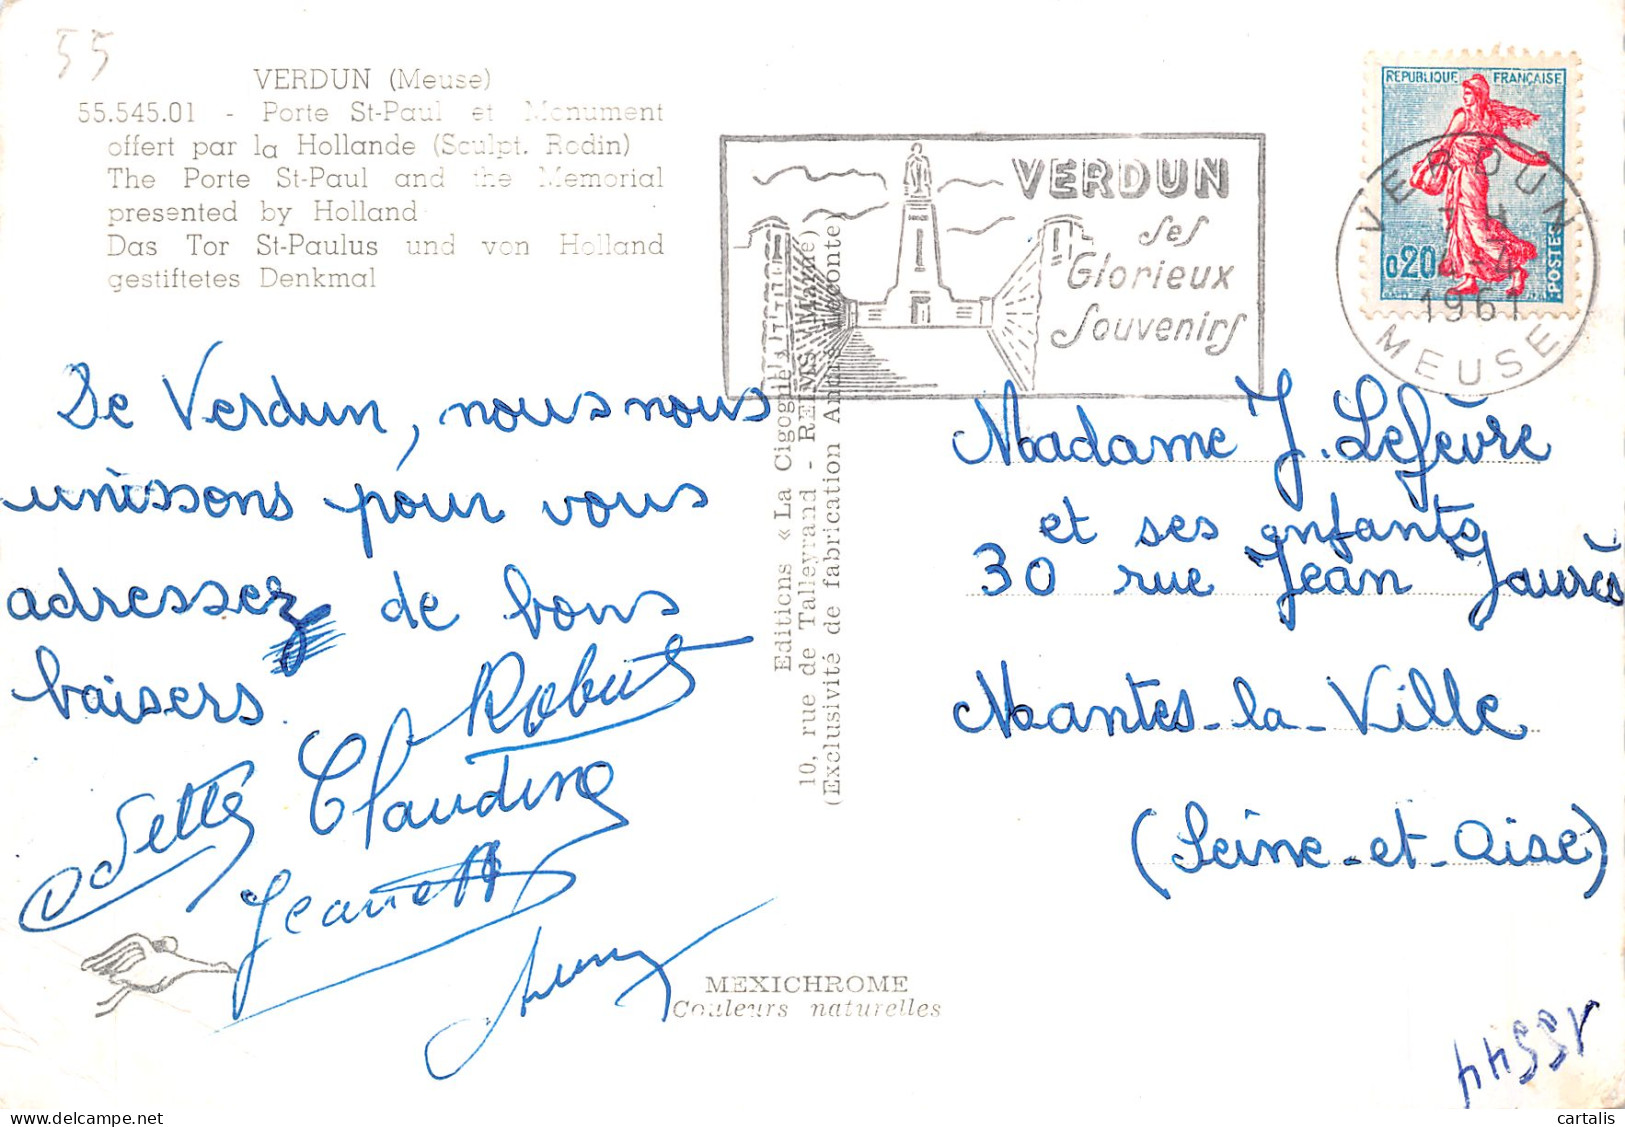 55
VERDUN (Meuse)
55.545.01 - Porte St-Paul et Monument
offert par la Hollande (Sculpt. Rodin)
The Porte St-Paul and the Memorial
presented by Holland
Das Tor St-Paulus und von Holland
gestiftetes Denkmal
VERDUN
ses
Glorieux
Souvenirs
REPUBLIQUE FRANÇAISE
0,20
POSTES
VERDUN
4-7
1961
MEUSE
De Verdun, nous nous
unissons pour vous
adressez de bons
baisers.
Robert
Claudine
Odette
Jeanette
Editions « La Cigogne »
10, rue de Talleyrand - REIMS (Marne)
(Exclusivité de fabrication Ancts Leconte)
Madame J. Lefèvre
et ses enfants
30 rue Jean Jaurès
Mantes-la-Ville
(Seine-et-Oise)
MEXICHROME
Couleurs naturelles
15544
cartalis